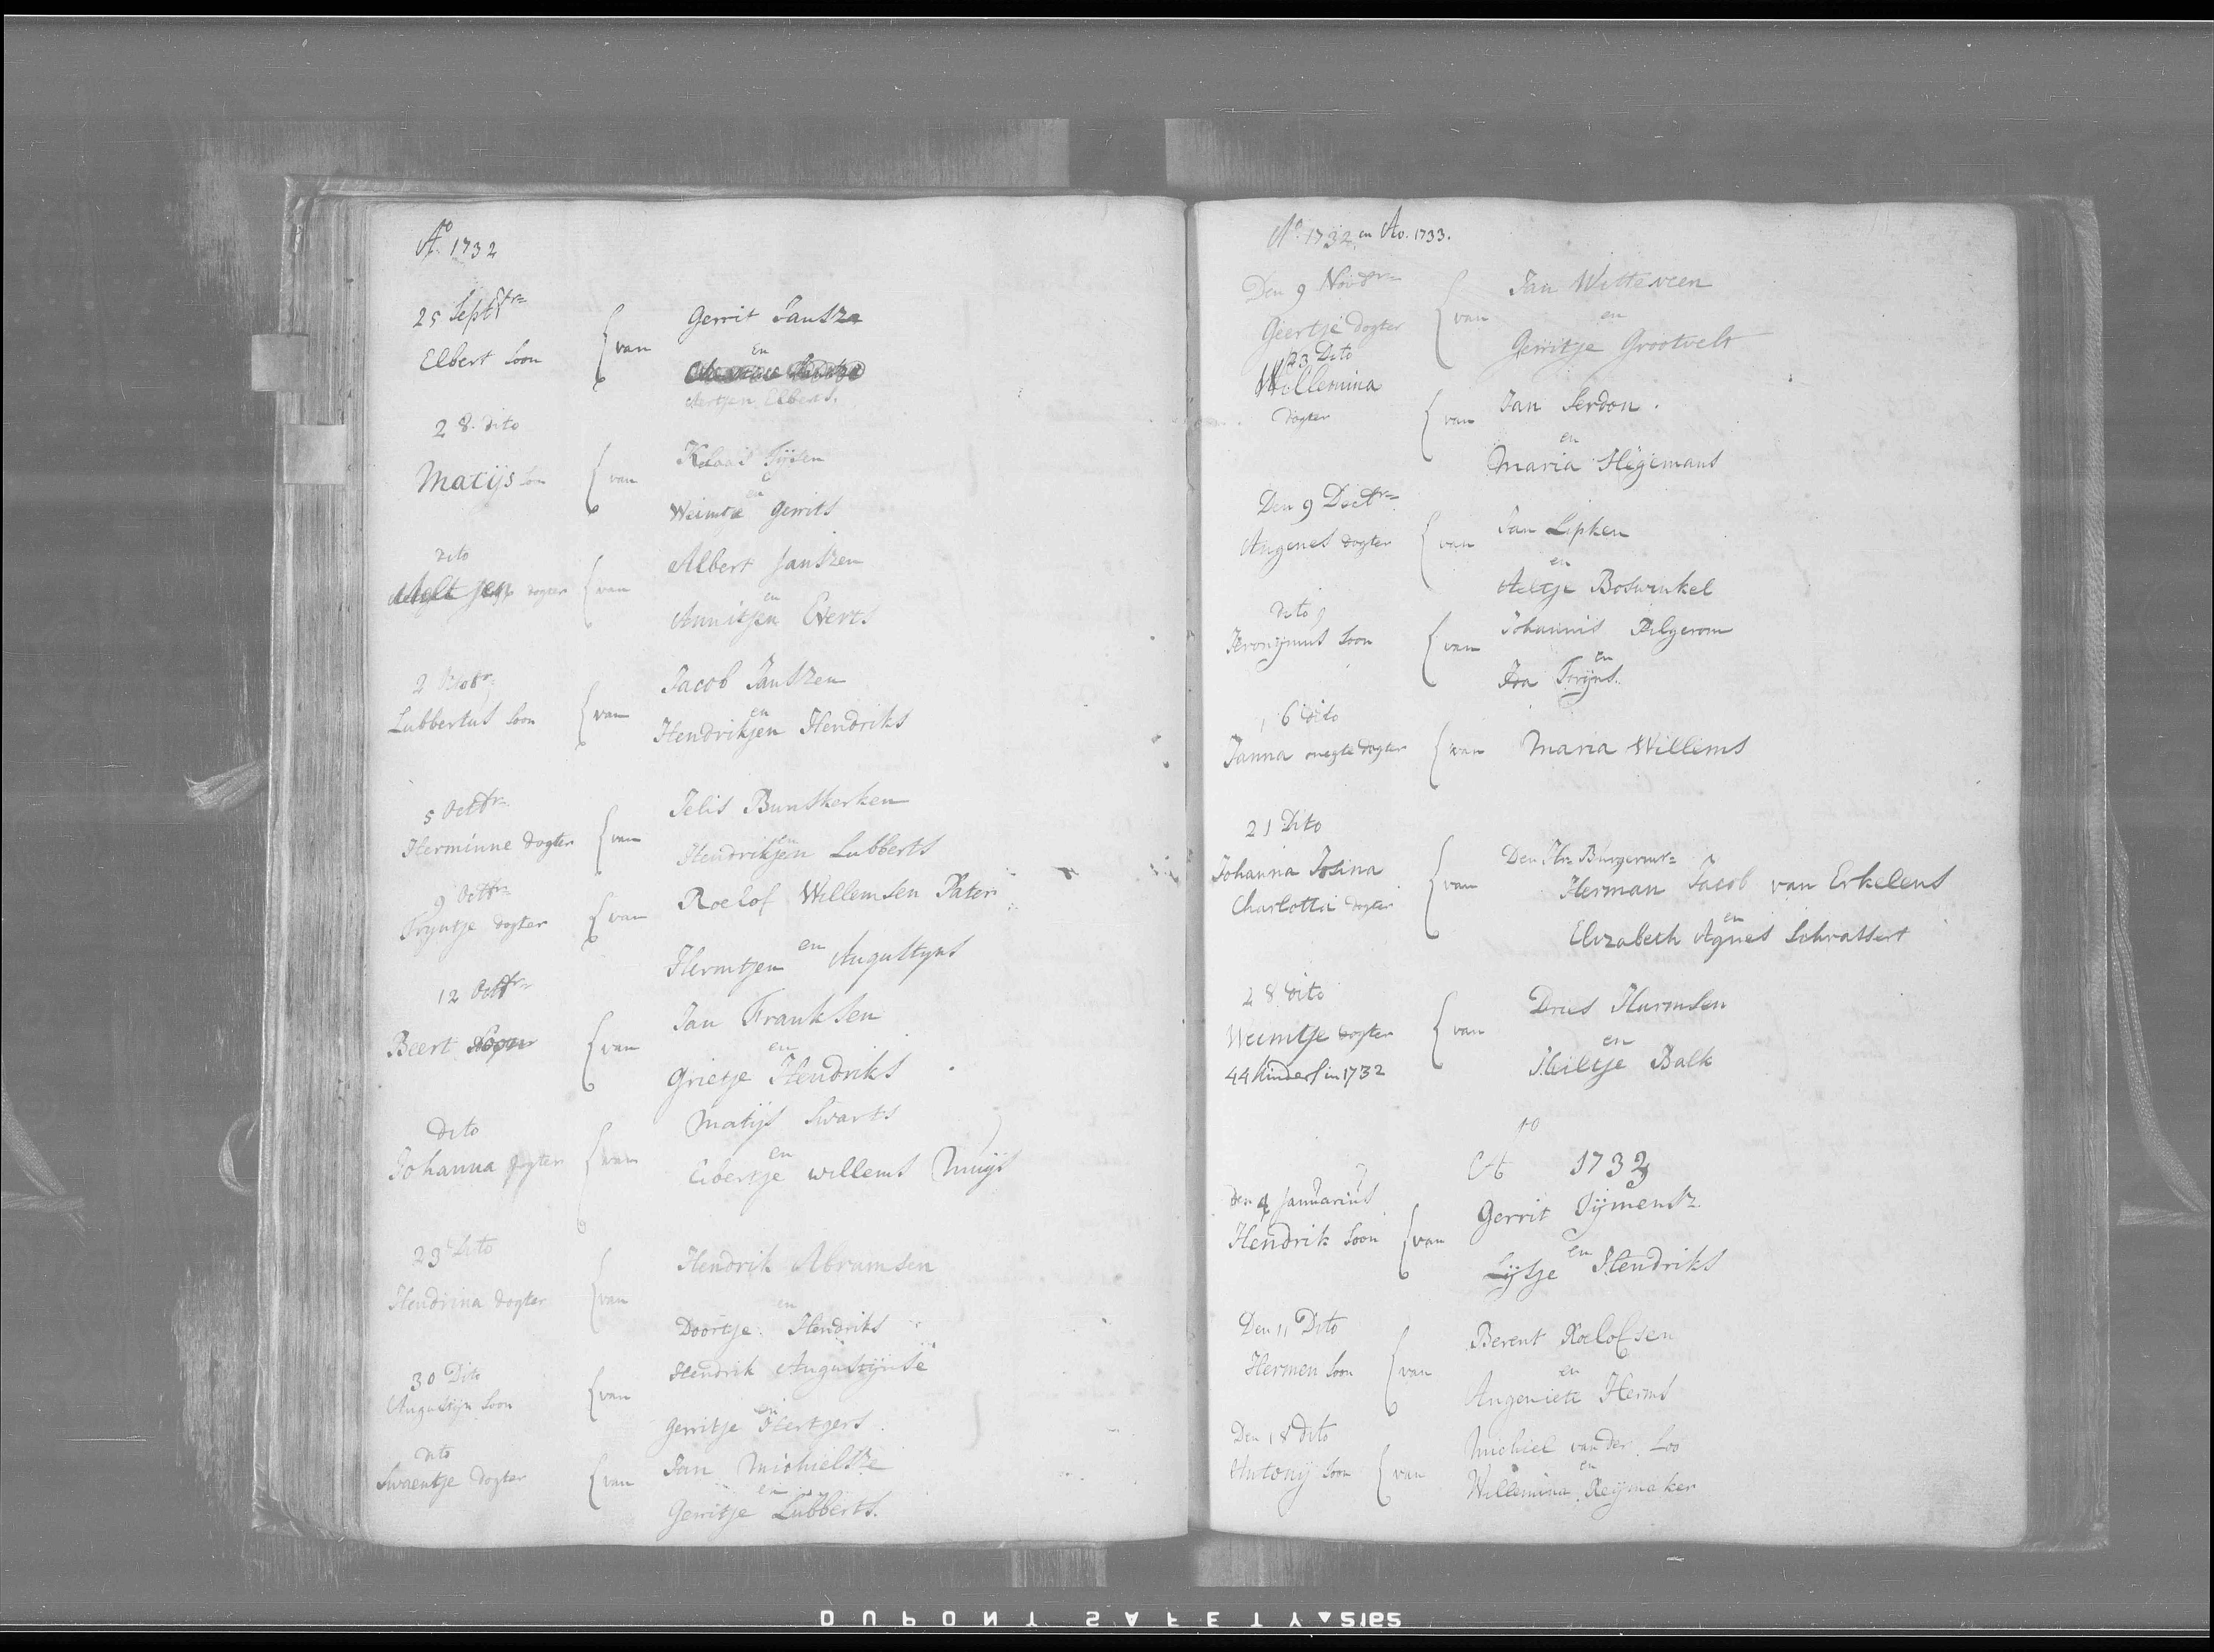 Ao. 1732
25 Septbr=
Elbert soon { van Gerrit Jansze
en
Aertjen Elberts.
28. dito
Matijs soon { van Klaas Tijsen
en
Weimtje Gerrits
dito
Aeltjen dogter { van Albert Janszen
en
Annitjen Everts
2 Octobr=
Lubbertus soon { van Jacob Janszen
en
Hendrikjen Hendriks
5 Octbr=
Herminne dogter { van Jelis Bunskerken
en
Hendrikjen Lubberts
9 Octbr=
Tryntje dogter { van Roelof Willemsen Pater
en
Hermtjen Augustyns
12 Octbr=
Beert { van Jan Franksen
en
Grietje Hendriks
dito
Johanna dogter { van Matijs Swarts
en
Eibertje Willems Nuijs
23 Dito
Hendrina dogter { van Hendrik Abramsen
en
Doortje Hendriks
30 Dito
Augustijn soon { van Hendrik Augustijnse
en
Gerritje Hertgers
dito
Swaentje dogter { van Jan Michielsze
en
Gerritje Lubberts.
Ao. 1732 en Ao. 1733.
Den 9 Novbr=
Geertje dogter { van Jan Witteveen
en
Gerritje Grootvelt
23 Dito
Willemina
dogter { van Jan Serdon.
en
Maria Hegemans
Den 9 Decbr=
Angenes dogter { van Jan Lipken
en
Aeltje Boswinkel
dito 9
Jeronymus soon { van Johannis Pilgerom
en
Joa Torijns.
16 dito
Janna onegte dogter { van Maria Willems
21 Dito
Johanna Josina
Charlotta dogter { van Den Hr= Burgermr=
Herman Jacob van Erkelens
en
Elizabeth Agnes Schrassert
28 dito
Weemtje dogter { van Dries Harmsen
en
Heiltje Balk
44 kinders in 1732
Ao 1733
Den 4 Januarius
Hendrik soon { van Gerrit Tijmensz
en
Lijsje Hendriks
Den 11 Dito
Hermen soon { van Berent Roelofsen
en
Angeniete Herms
Den 18 dito
Antonij soon { van Michiel van der Loo
en
Willemina Reijmaker
DUPONT SAFETY 5165